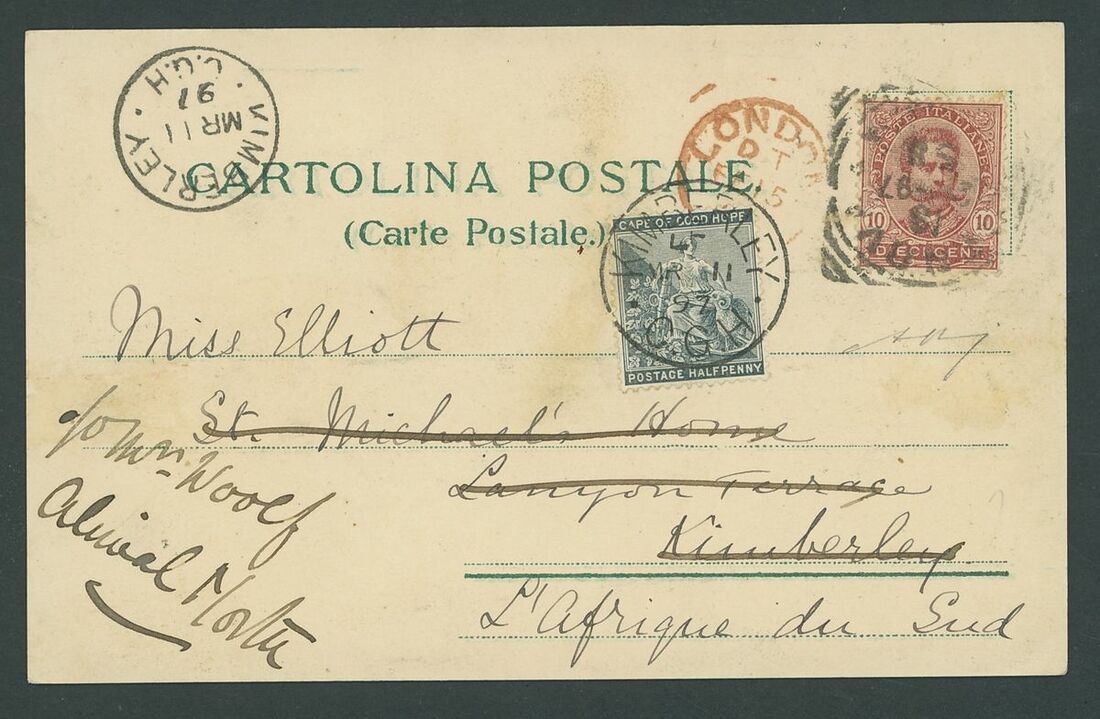 KIMBERLEY
MR 11
97
C.G.H
LONDON
CARTOLINA POSTALE.
(Carte Postale.)
POSTE ITALIANE
10 10
DIECI CENT.
CAPE OF GOOD HOPE
POSTAGE HALFPENNY
KIMBERLEY
MR 11
97
C G H
Miss Elliott
St. Michael's Home
Lanyon Terrace
Kimberley
L'Afrique du Sud
c/o Mrs Woolf
Aliwal North